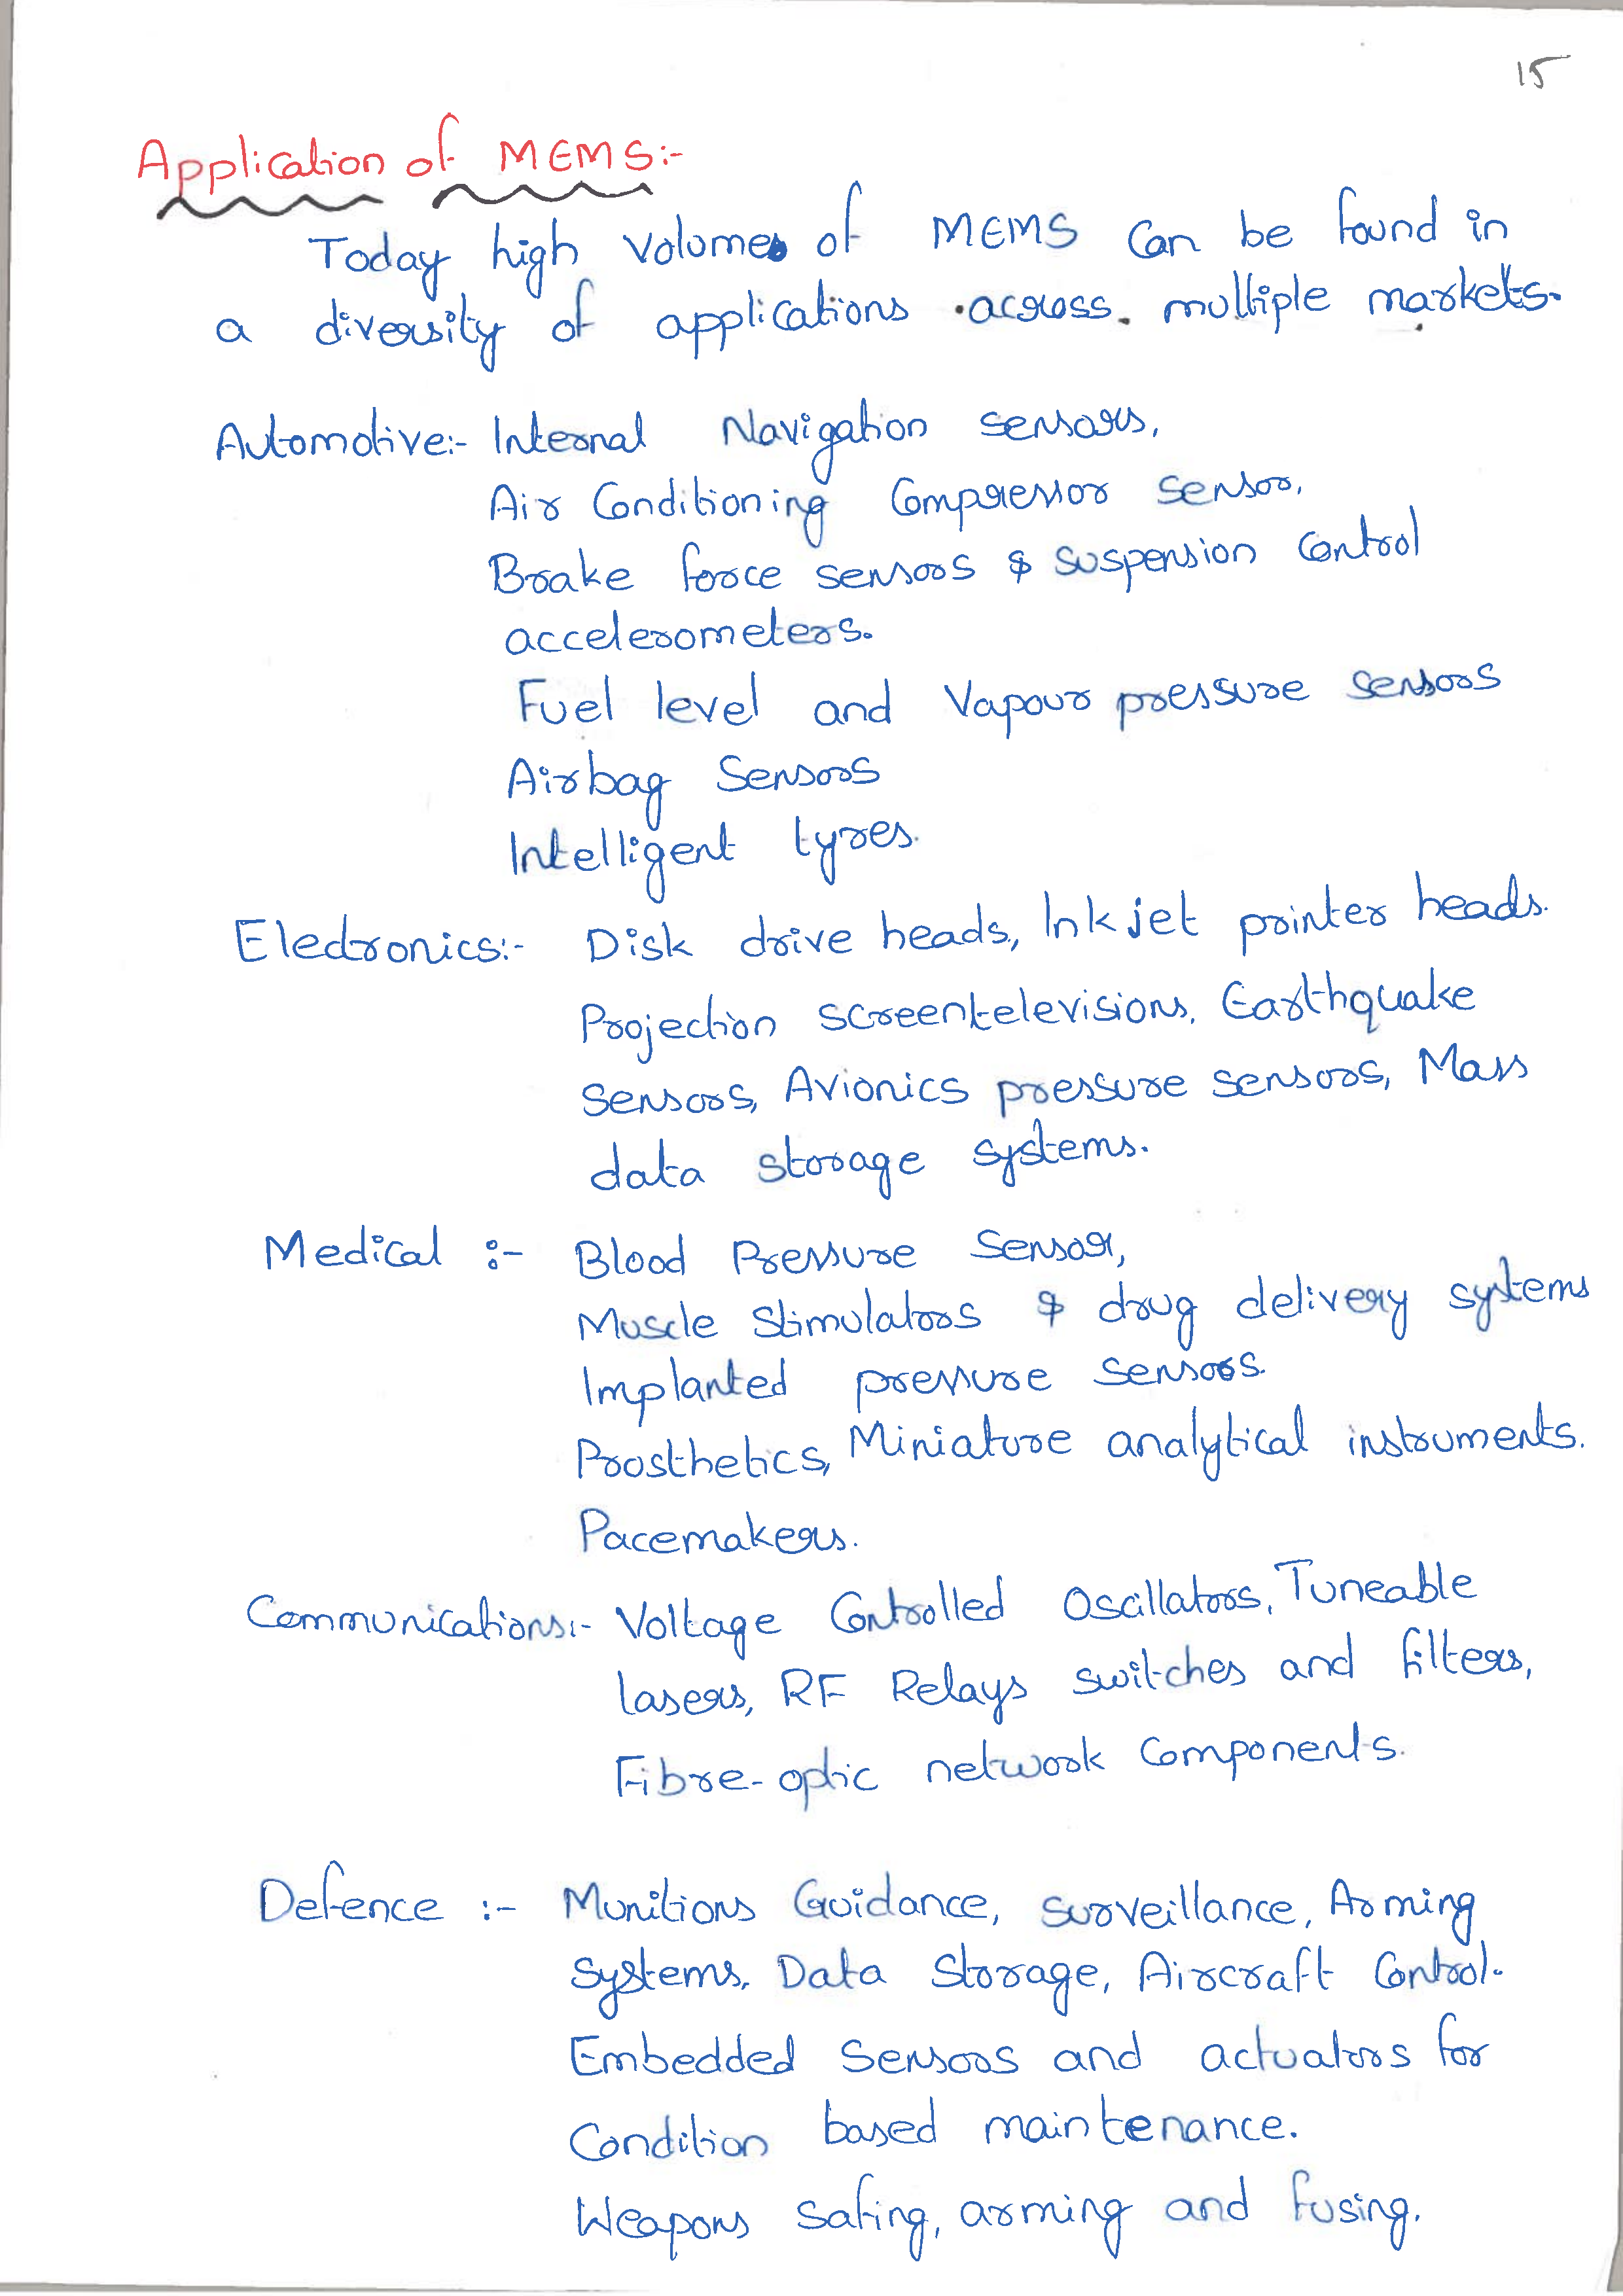 15
Application of MEMS:-
Today high volumes of MEMS can be found in
a diversity of applications across multiple markets.
Automotive:- Internal Navigation sensors,
Air Conditioning Compressor sensor,
Brake force sensors & suspension control
accelerometers.
Fuel level and Vapour pressure sensors
Airbag Sensors
Intelligent tyres.
Electronics:- Disk drive heads, Inkjet printer heads.
Projection screen televisions, Earthquake
Sensors, Avionics pressure sensors, Mass
data storage systems.
Medical :- Blood Pressure Sensor,
Muscle Stimulators & drug delivery systems
Implanted pressure sensors.
Prosthetics, Miniature analytical instruments.
Pacemakers.
Communications:- Voltage Controlled Oscillators, Tuneable
lasers, RF Relays switches and filters,
Fibre-optic network Components.
Defence :- Munitions Guidance, Surveillance, Arming
Systems, Data Storage, Aircraft Control.
Embedded Sensors and actuators for
Condition based maintenance.
Weapons safing, arming and fusing.